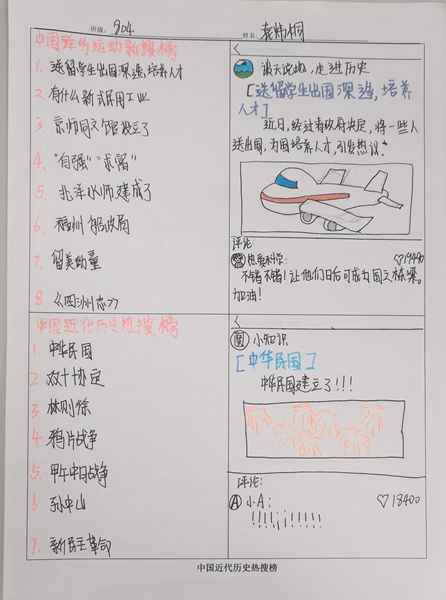 班级：904 姓名：
中国洋务运动新搜榜
1. 送留学生出国深造，培养人才
2. 有什么新式民用工业
3. 京师同文馆设立了
4. "自强""求富"
5. 北洋水师建成了
6. 福州船政局
7. 留美幼童
8 《四洲志》
谈天说地，走进历史
[送留学生出国深造，培养人才]
近日，经过有政府决定，将一些人
送出国，为国培养人才，引发热议。
评论：
热爱科学： ♡19400
不错不错！让他们日后可成为国之栋梁，
加油！
中国近代历史热搜榜
1. 中华民国
2. 双十协定
3. 林则徐
4. 鸦片战争
5. 甲午中日战争
6 孙中山
7. 新民主革命
小知识
[中华民国]
中华民国建立了!!!
评论：
A 小A： ♡13400
!!!!¡¡!!!!!!
中国近代历史热搜榜